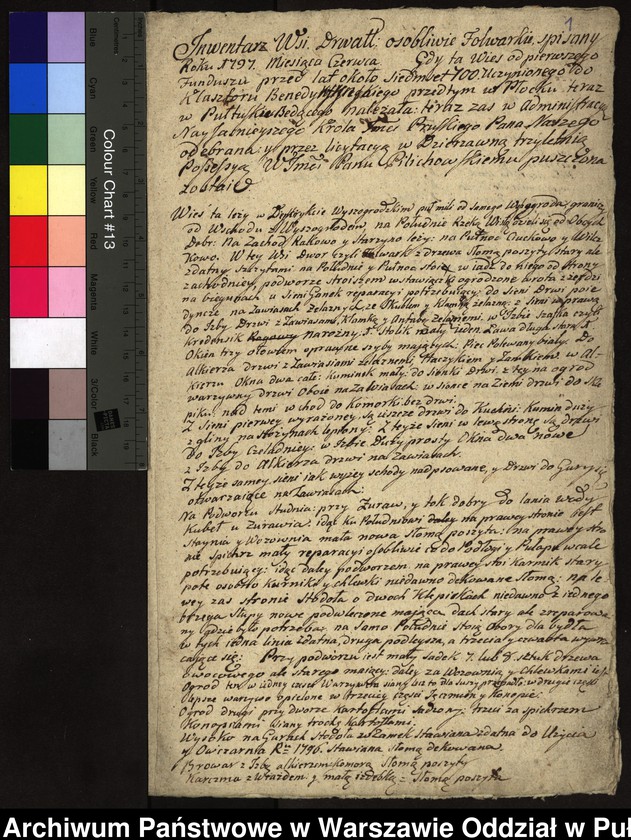 1
Inwentarz Wsi Drwały osobliwie Folwarku, spisany
Roku 1797. Miesiąca Czerwca. Gdy ta Wies od pierwszego
Funduszu przed lat około siedmset 700. Uczynionego do
Klasztoru Benedyktyńskiego przedtym w Płocku: teraz
w Pułtusku Będącego należała: teraz zas w Administracyą
Nayjasnieyszego Króla Jmci Pruskiego Pana Naszego
odebrana: y przez licytacyą w Dzierżawną trzyletnią
Possessyą W Jmci Panu Pilichowskiemu puszczona
została
Wies ta leży w Dystrykcie Wyszogrodzkim puł mili od samego Wyszogroda: graniczy
od Wschodu z Wyszogrodem, na Południe Rzeką Wisłą dzieli się od Obcych
Dobr: Na Zachod Rakowo y Starzyno leży: na Pułnoc Ciuckowo y Wilcz
kowo. W tey Wsi Dwor czyli Folwark z drzewa Słomą poszyty, stary ale
zdatny
na Południe y Pułnoc stoi, w jazd do niego od strony
zachodniey, podworze
ogrodzone wrota z żerdzi
na biegunach, u Sieni Ganek reperacyi potrzebuiący: do Sieni Drzwi poie
dyncze na Zawiasach Żelaznych, ze Skoblem y Klamką żelazną: z Sieni w prawą
do Izby Drzwi z Zawiasami, Klamką y Antabą żelaznemi. w Izbie Szafka czyli
Kredensik
Narożny. St. Stolik mały jeden Ława długa stara,
Okna trzy ołowiem oprawne szyby maiących: Piec Polewany biały: Do
Alkierza drzwi z Zawiasami żelaznemi, Haczykiem y Zamkiem w Al-
kierzu Okna dwa całe: kominek mały: do Sienki Drzwi: z tey na ogrod
warzywny drzwi Oboie na Zawiasach: w siance na Ziemi drzwi do Skle
piku: nad temi w chod do komorki bez drzwi.
Z Sieni pierwey wyrażoney, są ieszcze drzwi do Kuchni: Komin duży
z gliny na
lepiony: z teyże Sieni w lewą stronę są drzwi
Do Izby Czeladney: w Izbie Piec prosty Okna dwa nowe
z Izby do Alkierza drzwi na Zawiasach.
Z teyże samey sieni iak wyżey schody nadpsowane, y Drzwi do Gury się
otwieraiące na Zawiasach.
Na Podworzu Studnia: przy Żuraw, y tok dobry do lania wody
Kubeł u Żurawia: idąc ku Południowi daley na prawey stronie iest
Staynia y Wozownia mała nowa Słomą poszyta: na prawey stro
nie Spichrz mały reparacyi osobliwie co do Podłogi y Pułapu wcale
potrzebuiący: idąc daley podworzem na prawey stoi Karmik stary
pote osobno Kurniki y chlewki niedawno dekowane Słomą: na le
wey zas stronie Stodoła o dwoch Klepiskach niedawno z iednego
brzega Słupy nowe podwleczone maiąca dach stary ale zreparowa
ny gdzie było potrzeba, na samo Południe stoią Obory dla bydła
w tych iedna linia zdatna, druga podleysza, a trzecia y czwarta wywra
caiące się. Przy podworzu iest mały sadek 7. lub 8. sztuk drzewa
owocowego ale starego maiący: daley za Wozownią y chlewkami iest
Ogrod
w iedney części Warzywa
w drugiey części
lepsze warzywo opielone w trzeciey części Jęczmień y Konopie.
Ogrod drugi przy dworze Kartoflami sadzony: trzeci za spichrzem
Konopiami siany trochę kartoflami.
Wysoko na Gurkach Stodoła
stawiana zdatna do Użycia
y Owczarnia Rku 1796. stawiana Słomą dekowana.
Browar z Izbą alkierzem, komorą Słomą poszyty
Karczma z Wiazdem y małą izdebką Słomą poszyta
Colour Chart #13
Blue
Cyan
Green
Yellow
Red
Magenta
White
3/Color
Black
Centimetres
Archiwum Państwowe w Warszawie Oddział w Puł